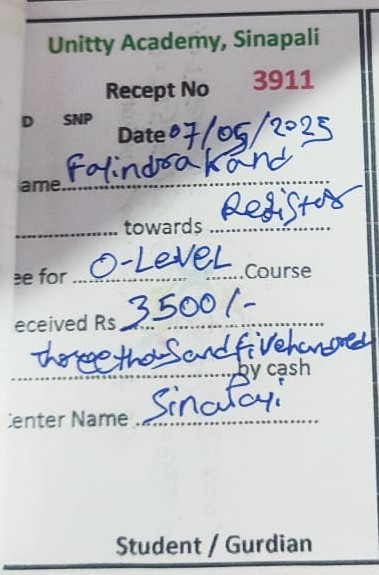 Unitty Academy, Sinapali
Recept No 3911
D SNP
Date 07/05/2025
ame Falindra Kand
towards Register
ee for O-Level Course
eceived Rs 3500/-
three thousand five hundred
by cash
enter Name Sinapali
Student / Gurdian